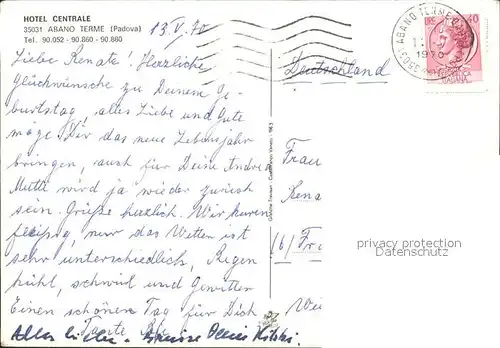 HOTEL CENTRALE
35031 ABANO TERME (Padova)
Tel. 90.052 - 90.860 - 90.880
13.V.70
Liebe Renate! Herzliche
Glückwünsche zu Deinem Ge-
burtstag, alles Liebe und Gute
möge Dir das neue Lebensjahr
bringen, auch für Deine Andrea
Mutti wird ja wieder zurück
sein. Grüße herzlich. Wir kuren
fleißig, nur das Wetter ist
sehr unterschiedlich, Regen
kühl, schwül und Gewitter
Einen schönen Tag für Dich
Tante
Alles Liebe
Deutschland
ABANO TERME
1970
LIRE 40
Frau
Rena
(6) Fr
privacy protection
Datenschutz